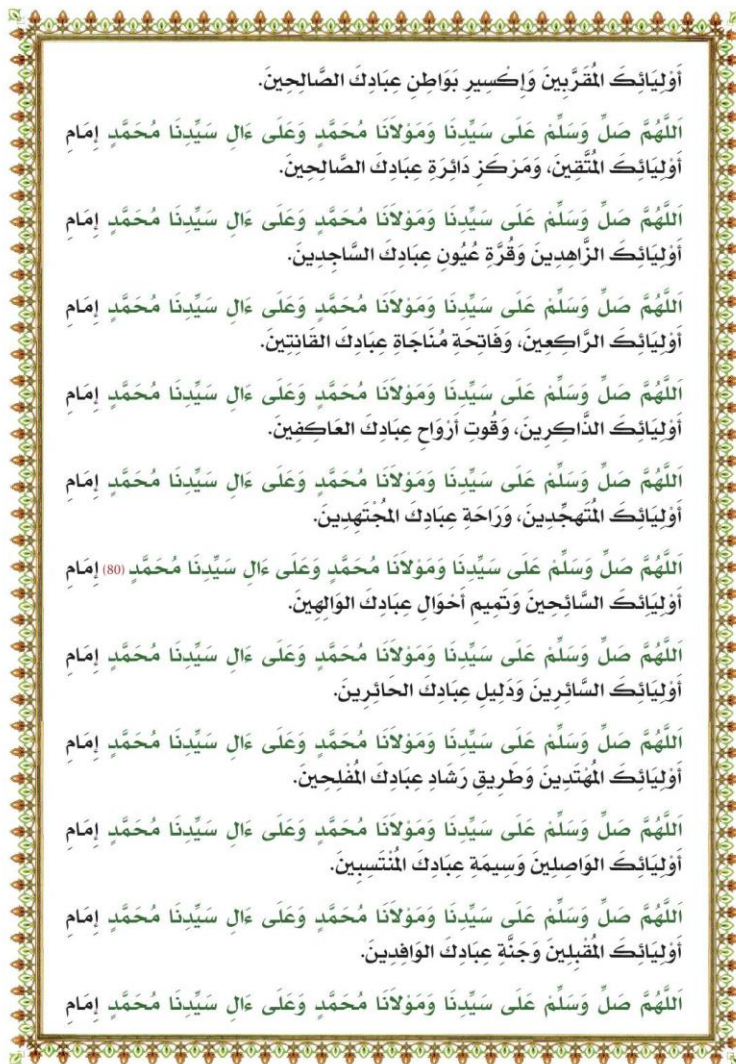 أَوْلِيَائِكَ الْمُقَرَّبِينَ وَإِكْسِيرِ بَوَاطِنِ عِبَادِكَ الصَّالِحِينَ.
اَللَّهُمَّ صَلِّ وَسَلِّمْ عَلَى سَيِّدِنَا وَمَوْلَانَا مُحَمَّدٍ وَعَلَى ءَالِ سَيِّدِنَا مُحَمَّدٍ إِمَامِ
أَوْلِيَائِكَ الْمُتَّقِينَ، وَمَرْكَزِ دَائِرَةِ عِبَادِكَ الصَّالِحِينَ.
اَللَّهُمَّ صَلِّ وَسَلِّمْ عَلَى سَيِّدِنَا وَمَوْلَانَا مُحَمَّدٍ وَعَلَى ءَالِ سَيِّدِنَا مُحَمَّدٍ إِمَامِ
أَوْلِيَائِكَ الزَّاهِدِينَ وَقُرَّةِ عُيُونِ عِبَادِكَ السَّاجِدِينَ.
اَللَّهُمَّ صَلِّ وَسَلِّمْ عَلَى سَيِّدِنَا وَمَوْلَانَا مُحَمَّدٍ وَعَلَى ءَالِ سَيِّدِنَا مُحَمَّدٍ إِمَامِ
أَوْلِيَائِكَ الرَّاكِعِينَ، وَفَاتِحَةِ مُنَاجَاةِ عِبَادِكَ القَانِتِينَ.
اَللَّهُمَّ صَلِّ وَسَلِّمْ عَلَى سَيِّدِنَا وَمَوْلَانَا مُحَمَّدٍ وَعَلَى ءَالِ سَيِّدِنَا مُحَمَّدٍ إِمَامِ
أَوْلِيَائِكَ الذَّاكِرِينَ، وَقُوتِ أَرْوَاحِ عِبَادِكَ العَاكِفِينَ.
اَللَّهُمَّ صَلِّ وَسَلِّمْ عَلَى سَيِّدِنَا وَمَوْلَانَا مُحَمَّدٍ وَعَلَى ءَالِ سَيِّدِنَا مُحَمَّدٍ إِمَامِ
أَوْلِيَائِكَ الْمُتَهَجِّدِينَ، وَرَاحَةِ عِبَادِكَ الْمُجْتَهِدِينَ.
اَللَّهُمَّ صَلِّ وَسَلِّمْ عَلَى سَيِّدِنَا وَمَوْلَانَا مُحَمَّدٍ وَعَلَى ءَالِ سَيِّدِنَا مُحَمَّدٍ (80) إِمَامِ
أَوْلِيَائِكَ السَّائِحِينَ وَتَمِيمِ أَحْوَالِ عِبَادِكَ الوَالِهِينَ.
اَللَّهُمَّ صَلِّ وَسَلِّمْ عَلَى سَيِّدِنَا وَمَوْلَانَا مُحَمَّدٍ وَعَلَى ءَالِ سَيِّدِنَا مُحَمَّدٍ إِمَامِ
أَوْلِيَائِكَ السَّائِرِينَ وَدَلِيلِ عِبَادِكَ الحَائِرِينَ.
اَللَّهُمَّ صَلِّ وَسَلِّمْ عَلَى سَيِّدِنَا وَمَوْلَانَا مُحَمَّدٍ وَعَلَى ءَالِ سَيِّدِنَا مُحَمَّدٍ إِمَامِ
أَوْلِيَائِكَ الْمُهْتَدِينَ وَطَرِيقِ رَشَادِ عِبَادِكَ الْمُفْلِحِينَ.
اَللَّهُمَّ صَلِّ وَسَلِّمْ عَلَى سَيِّدِنَا وَمَوْلَانَا مُحَمَّدٍ وَعَلَى ءَالِ سَيِّدِنَا مُحَمَّدٍ إِمَامِ
أَوْلِيَائِكَ الوَاصِلِينَ وَسِيمَةِ عِبَادِكَ الْمُنْتَسِبِينَ.
اَللَّهُمَّ صَلِّ وَسَلِّمْ عَلَى سَيِّدِنَا وَمَوْلَانَا مُحَمَّدٍ وَعَلَى ءَالِ سَيِّدِنَا مُحَمَّدٍ إِمَامِ
أَوْلِيَائِكَ الْمُقْبِلِينَ وَجَنَّةِ عِبَادِكَ الوَافِدِينَ.
اَللَّهُمَّ صَلِّ وَسَلِّمْ عَلَى سَيِّدِنَا وَمَوْلَانَا مُحَمَّدٍ وَعَلَى ءَالِ سَيِّدِنَا مُحَمَّدٍ إِمَامِ